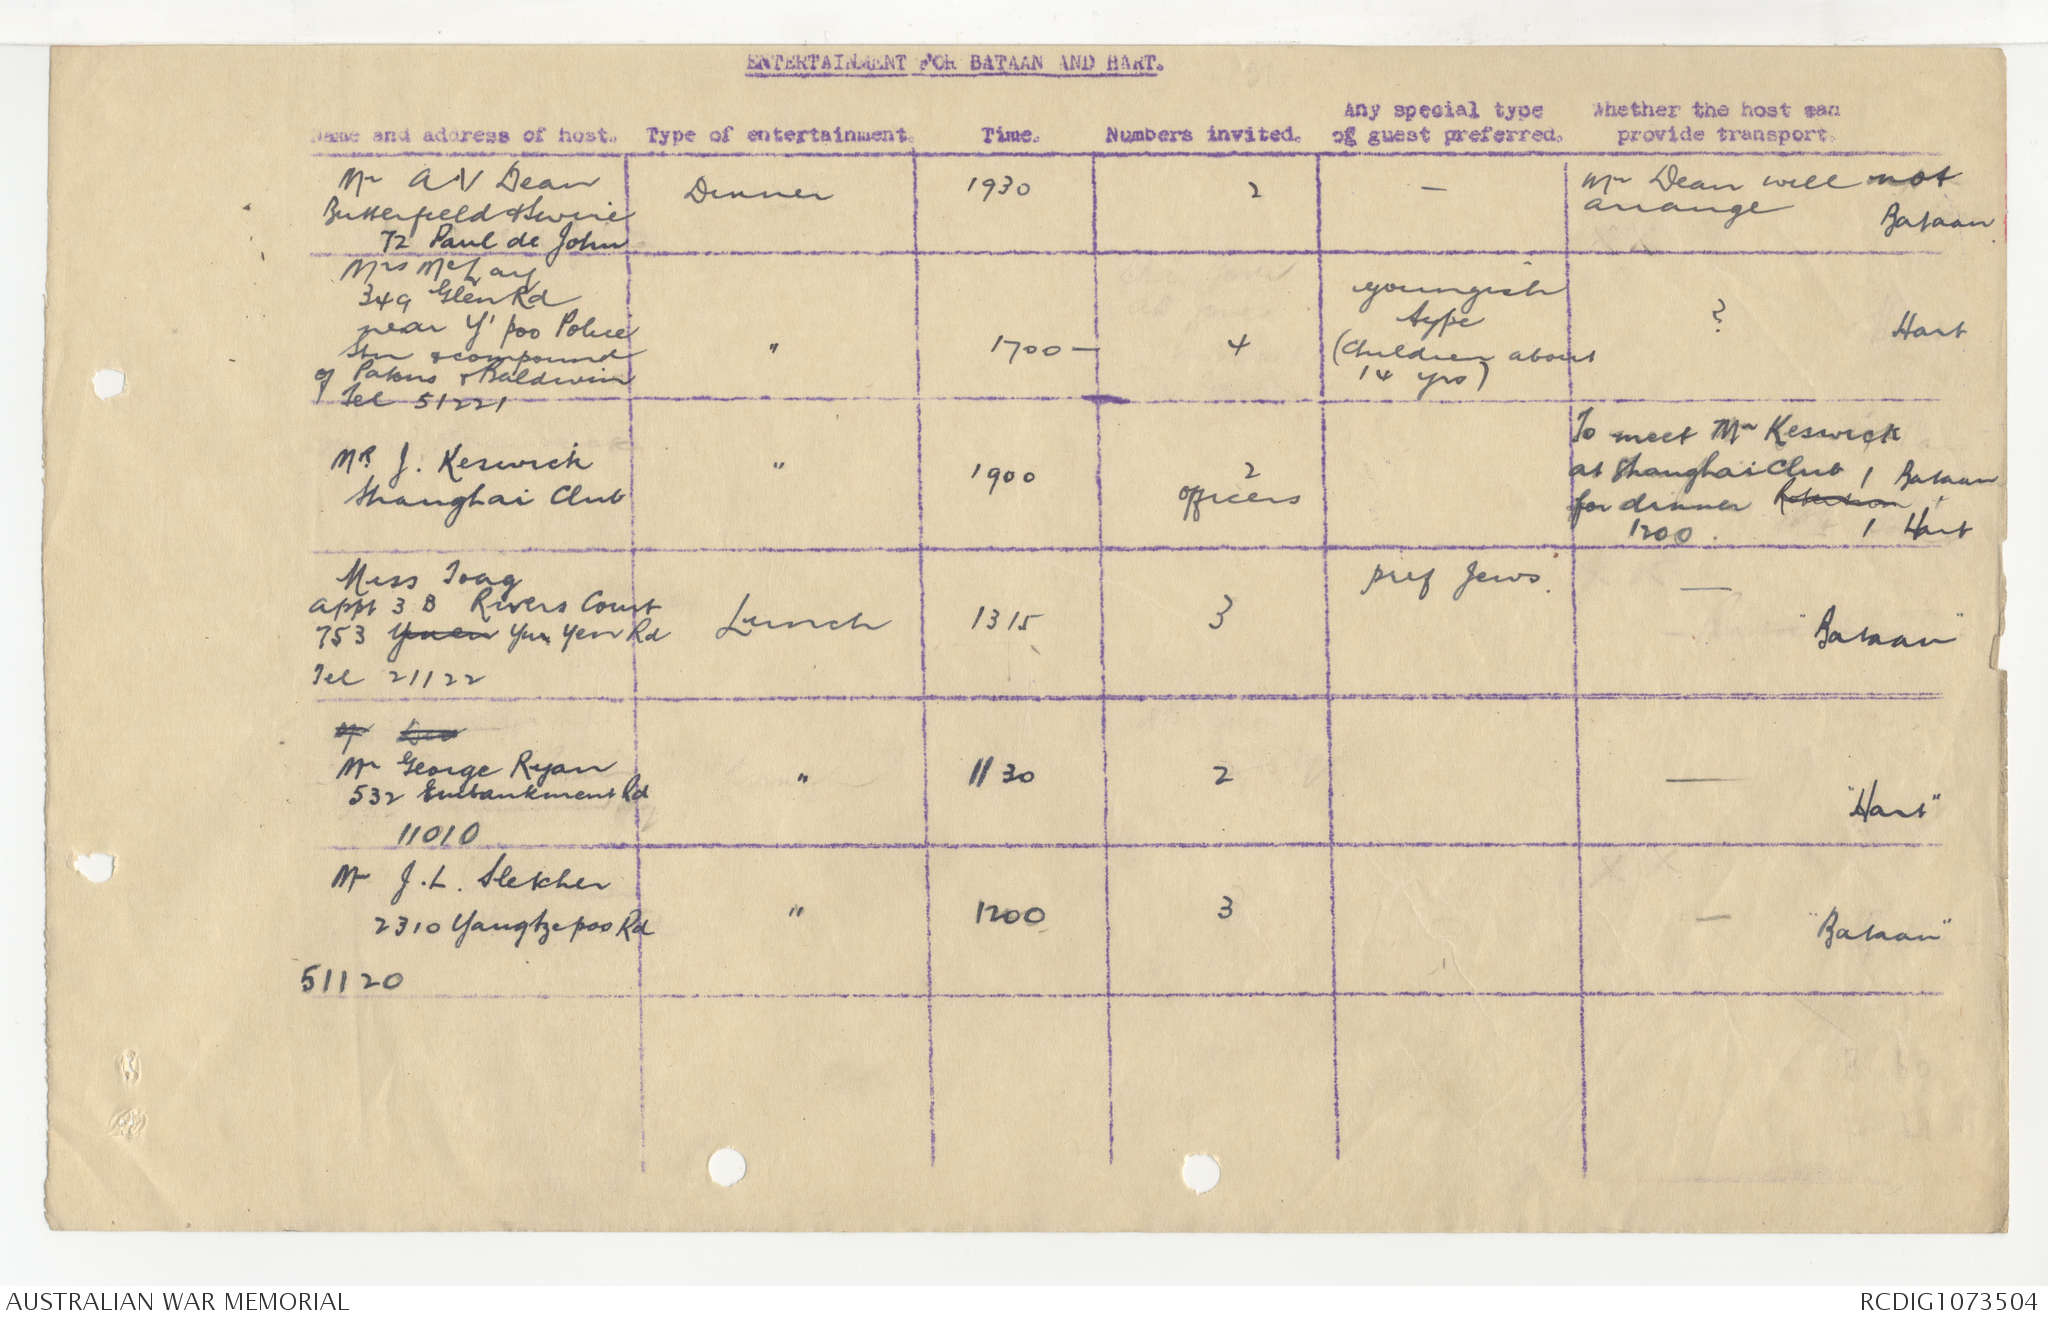 ENTERTAINMENT FOR BATAAN AND HART.
Name and address of host. Type of entertainment. Time. Numbers invited. Any special type of guest preferred. Whether the host can provide transport.
Mr A V Dean
Butterfield & Swire
72 Paul de John
Dinner
1930
2
—
Mr Dean will not
arrange
Bataan
Mrs McLay
349 Glen Rd
near Y'poo Police
Stn & compound
of Patons & Baldwin
Tel 51221
"
1700 —
4
youngish
type
(Children about
14 yrs)
?
Hart
Mr J. Keswick
Shanghai Club
"
1900
2
officers
To meet Mr Keswick
at Shanghai Club 1 Bataan
for dinner
1200. 1 Hart
Miss Toag
Appt 3 B Rivers Court
753 Yuen Yu Yen Rd
Tel 21122
Lunch
1315
3
pref Jews.
—
"Bataan"
Mr
Mr George Ryan
532 Embankment Rd
11010
"
1130
2
—
"Hart"
Mr J.L. Sletcher
2310 Yangtzepoo Rd
51120
"
1200
3
—
"Bataan"
AUSTRALIAN WAR MEMORIAL
RCDIG1073504